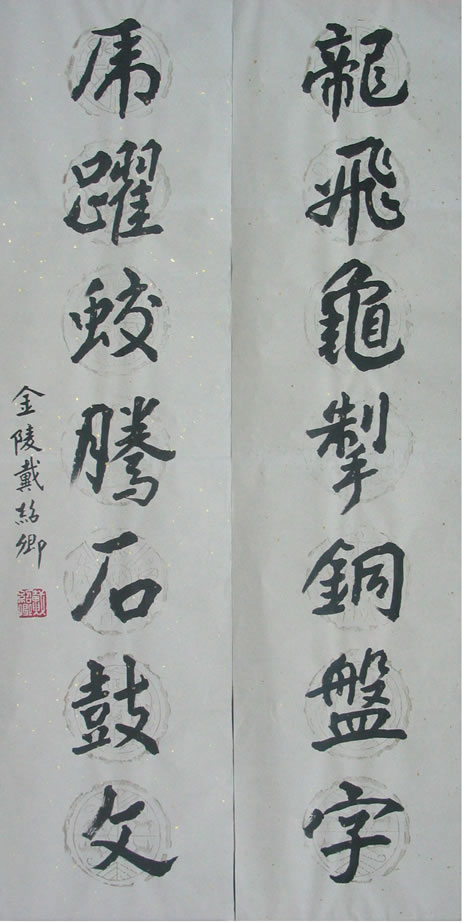 龍飛龜掣銅盤字
虎躍蛟騰石鼓文
金陵戴紹卿